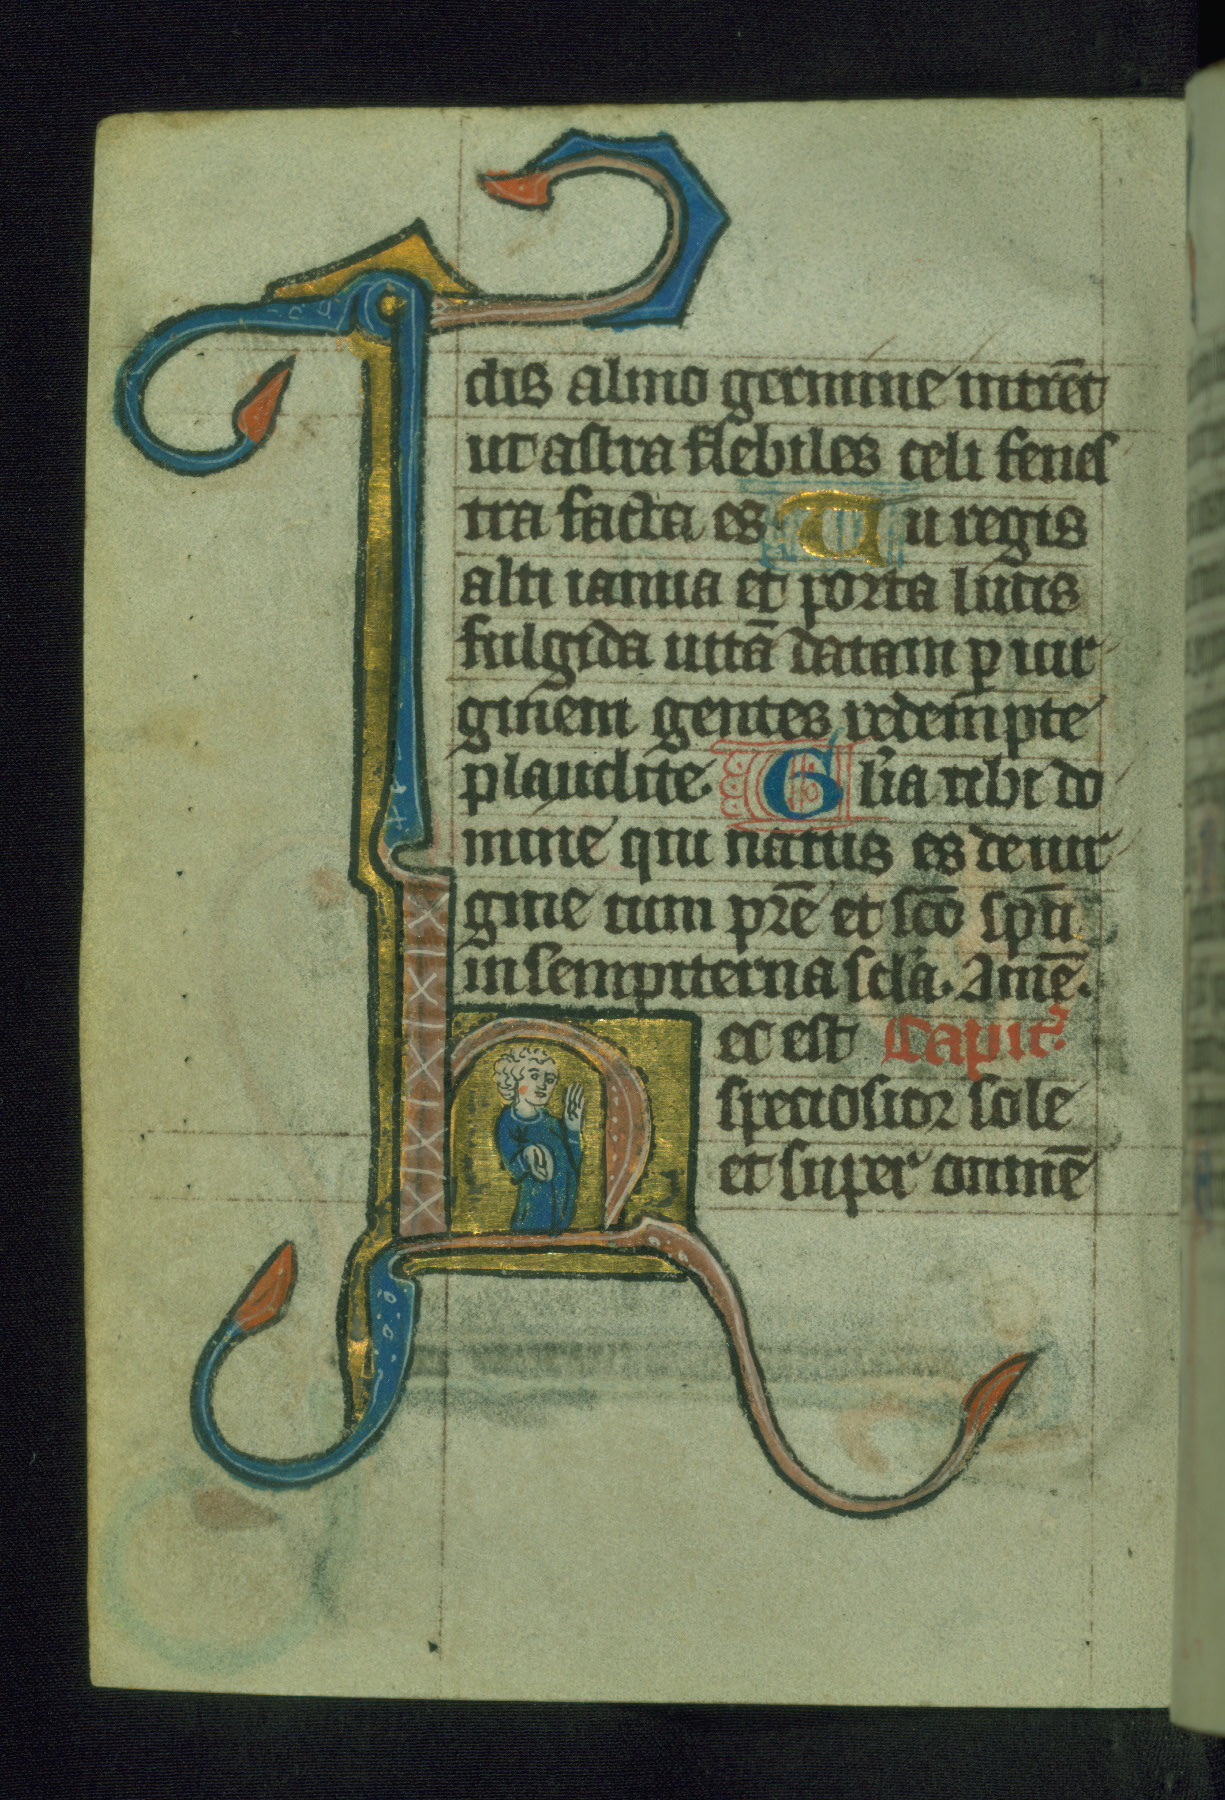 dis almo germine intrēt
ut astra flebiles celi fenes
tra facta es Tu regis
alti ianua et porta lucis
fulgida uitā datam p uir
ginem gentes redempte
plaudite. Glīa tibi do
mine qui natus es de uir
gine cum pr̄e et sc̄o sp̄u
in sempiterna sc̄la. Amē.
ec est Capit᷒
speciosior sole
et super omnē